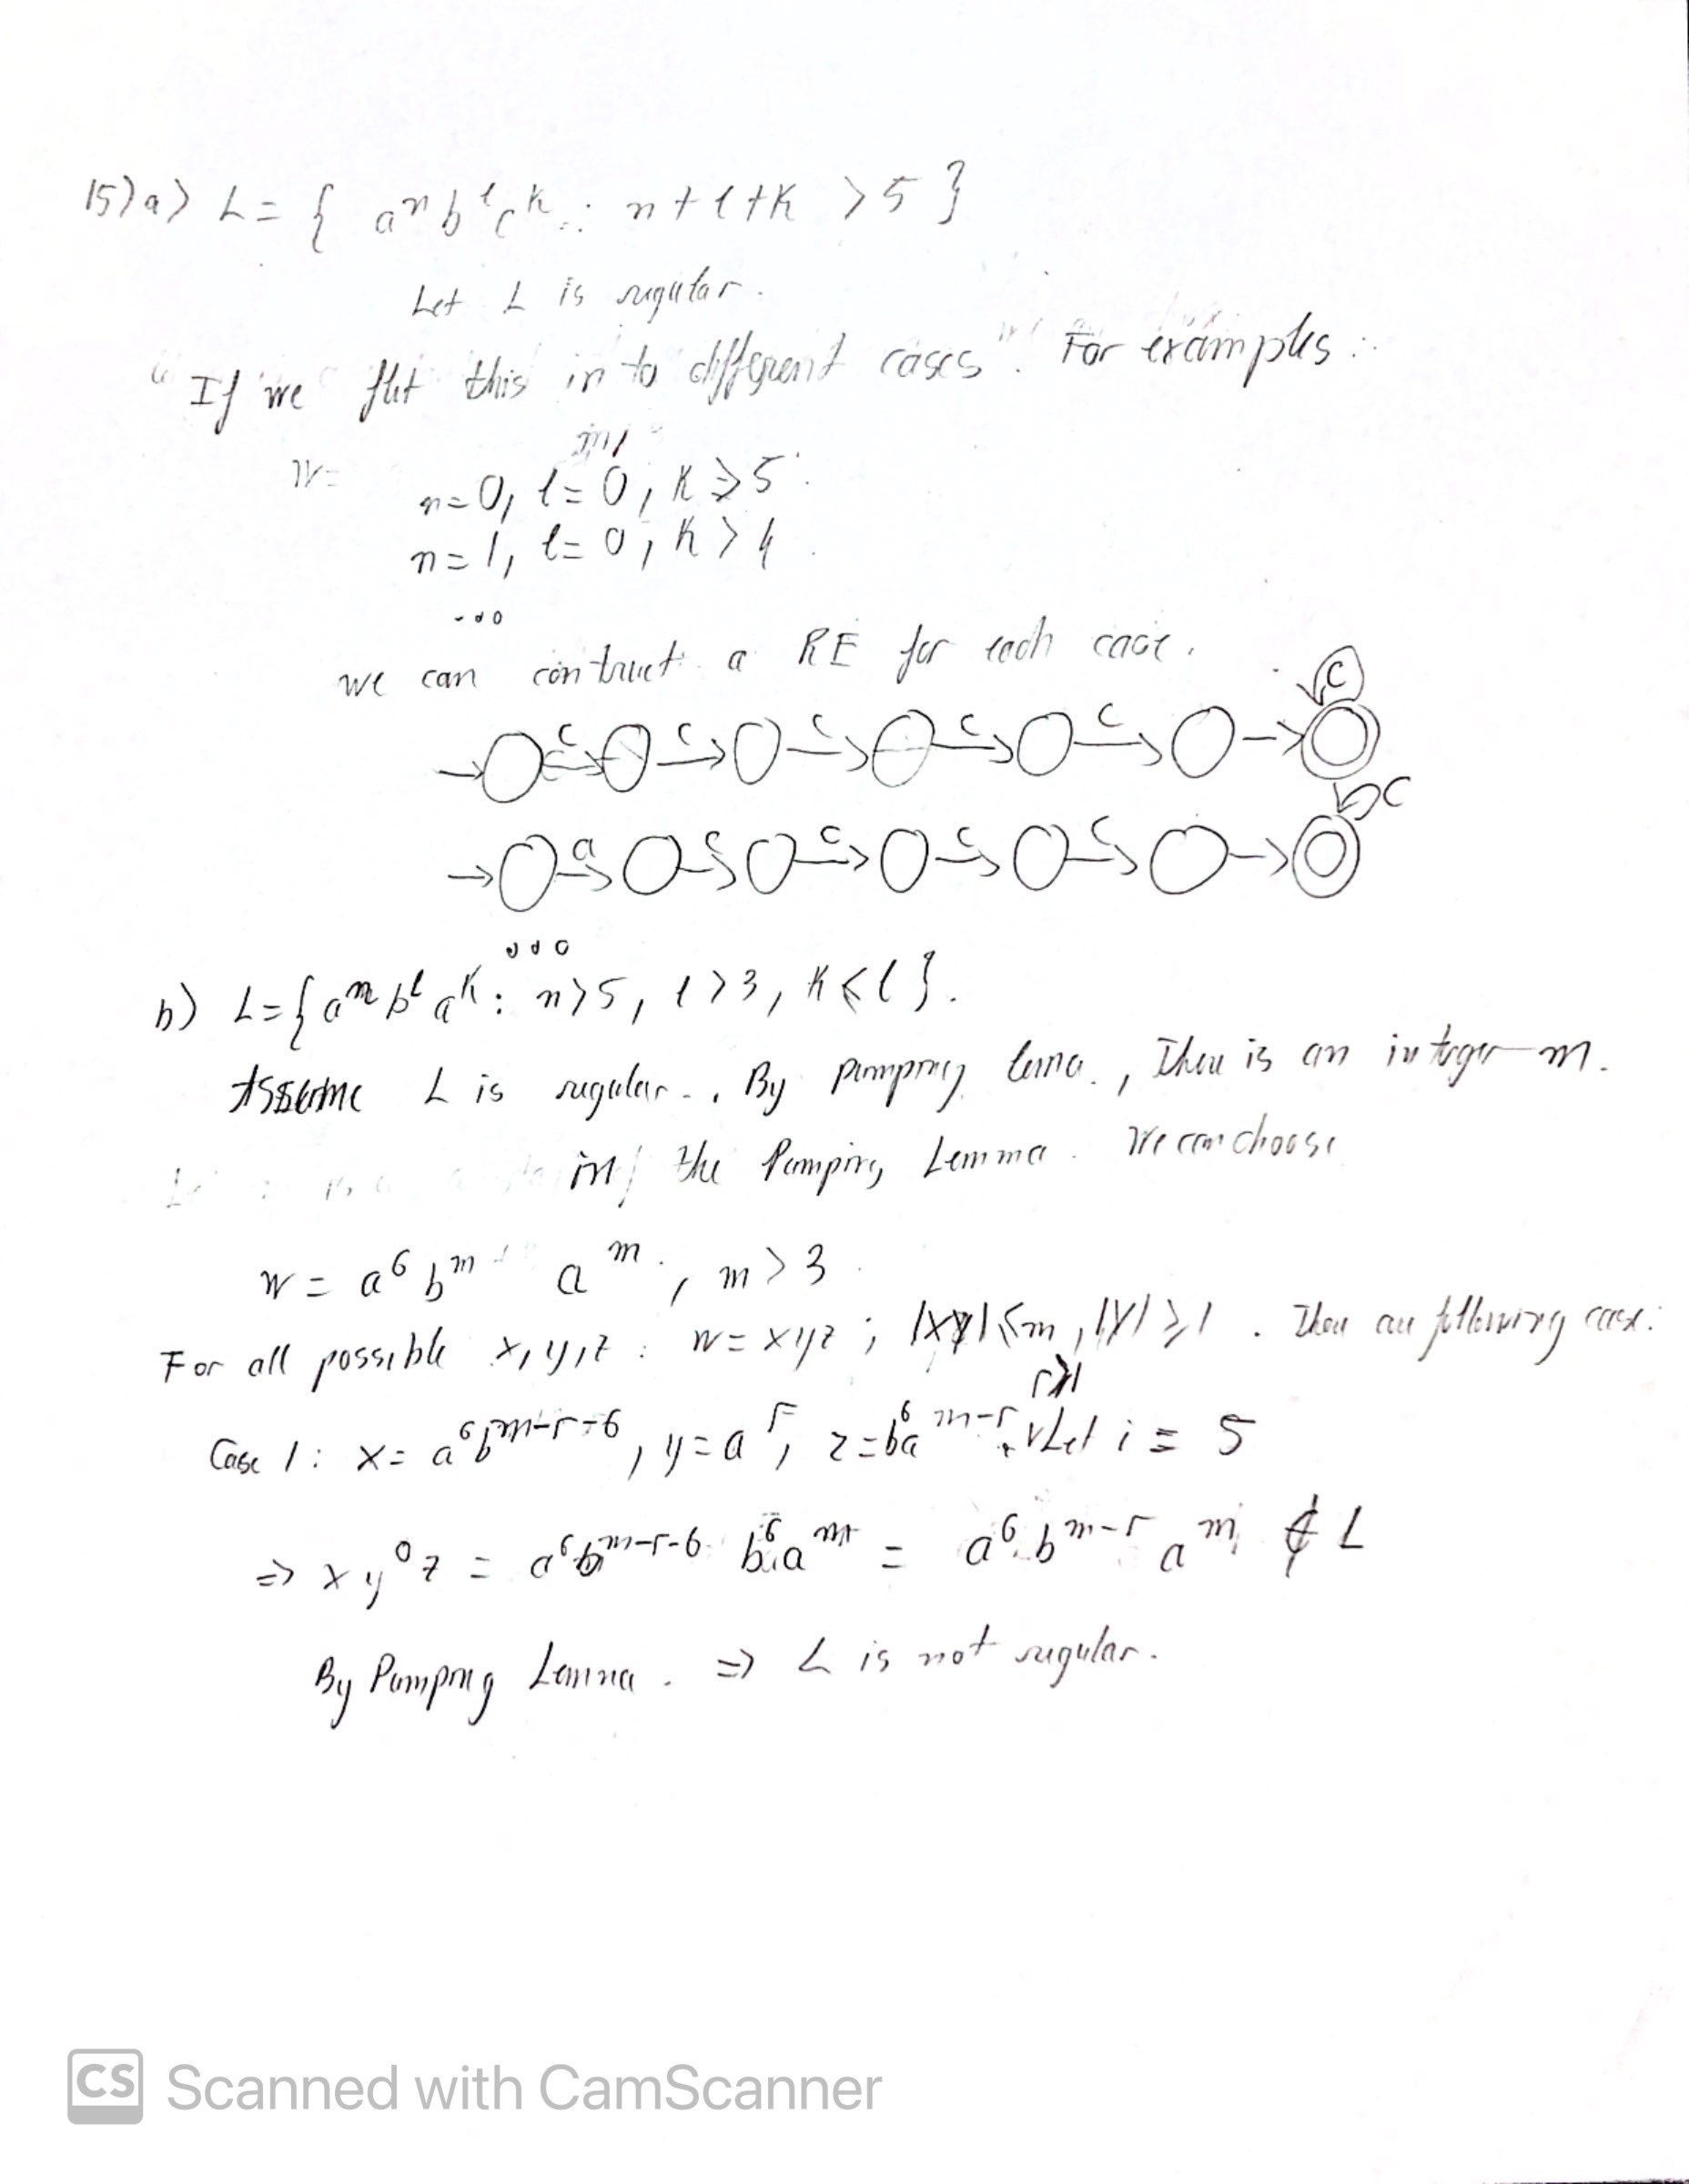 15) a) L = { aⁿ bˡ cᵏ : n + l + k > 5 }
Let L is regular.
"If we this in to different cases". For examples :
W =
n = 0, l = 0, k ≥ 5
n = 1, l = 0, k > 4
...
we can contruct a RE for each case.
c
→ c c c c c
c
→ a c c c c
...
b) L = { aⁿ bˡ aᵏ : n > 5, l > 3, k ≤ l }.
Assume L is regular. By pumping lema, There is an integer m.
in the Pumping Lemma. We can choose
w = a⁶ bᵐ aᵐ, m > 3
For all possible x, y, z : w = xyz ; |xy| ≤ m, |y| ≥ 1. There are following case:
Case 1 : x = a⁶ bᵐ⁻ʳ⁻⁶, y = aʳ, z = b⁶ aᵐ⁻ʳ. Let i = 5
⇒ x y⁰ z = a⁶ bᵐ⁻ʳ⁻⁶ b⁶ aᵐ = a⁶ bᵐ⁻ʳ aᵐ ∉ L
By Pumping Lemma. ⇒ L is not regular.
CS Scanned with CamScanner